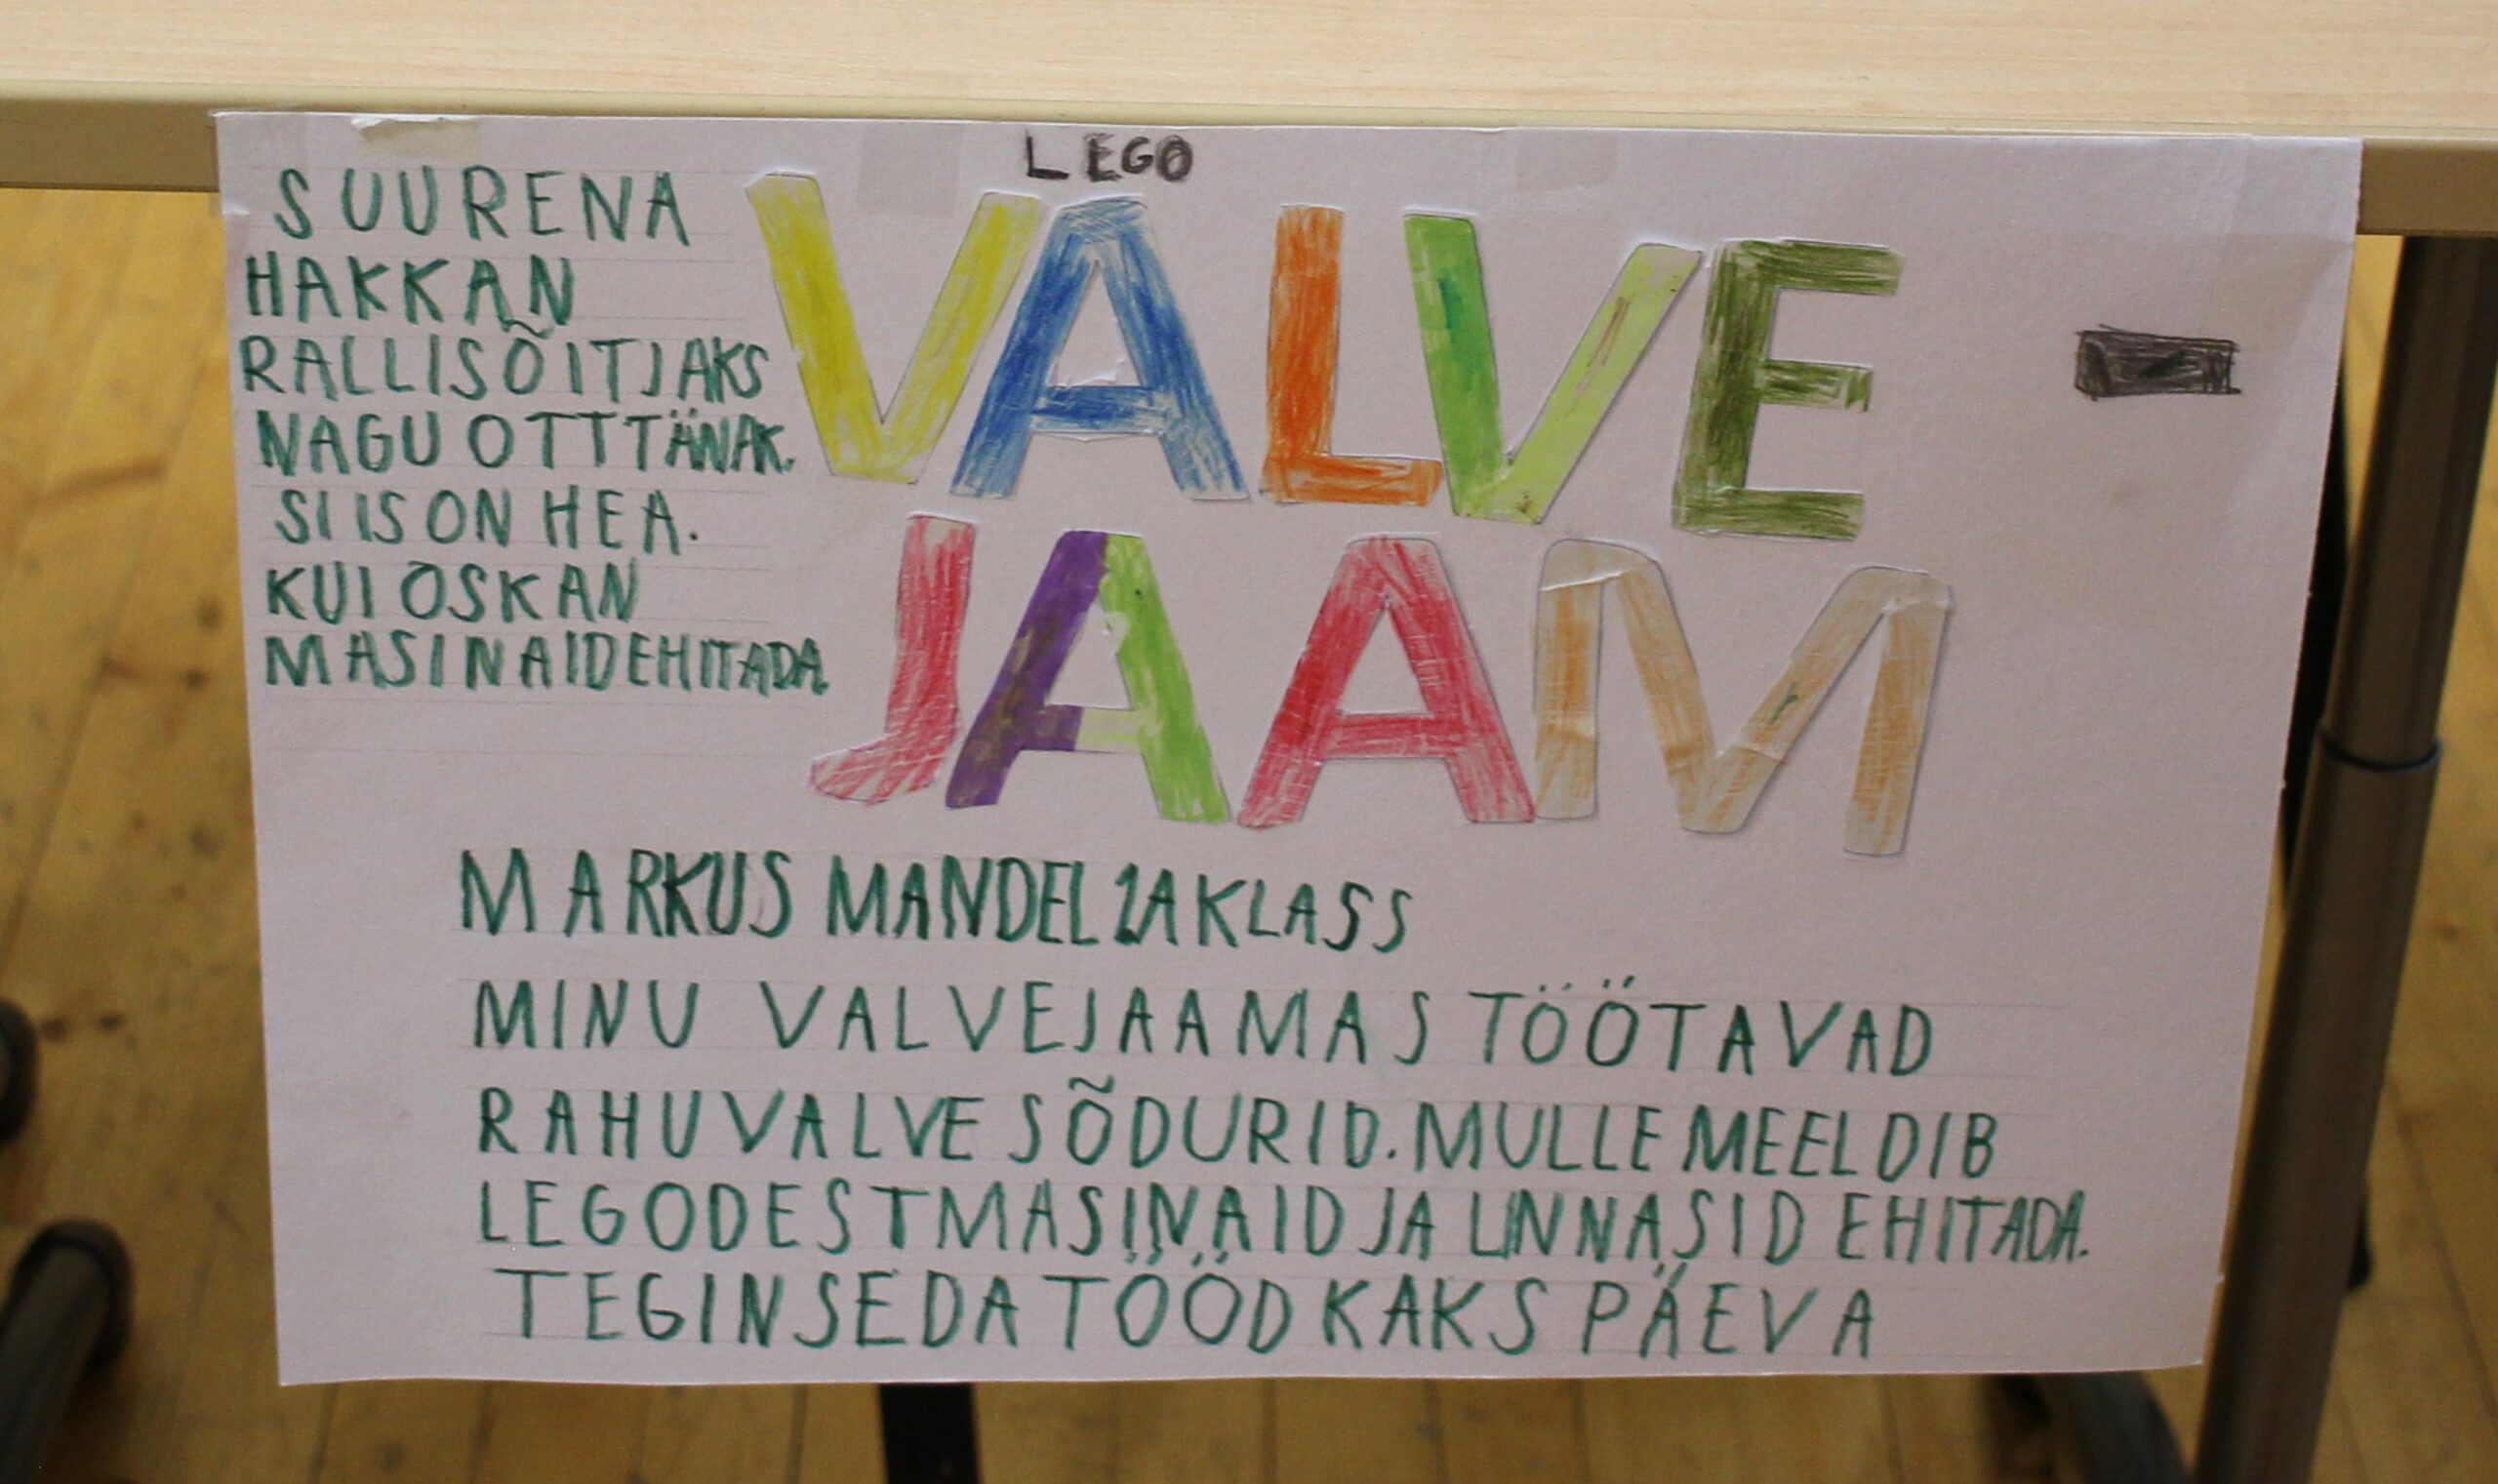 LEGO
VALVE -
JAAM
SUURENA
HAKKAN
RALLISÕITJAKS
NAGU OTT TÄNAK.
SIIS ON HEA.
KUI OSKAN
MASINAID EHITADA.
MARKUS MANDEL 1A KLASS
MINU VALVEJAAMAS TÖÖTAVAD
RAHUVALVE SÕDURID. MULLE MEELDIB
LEGODEST MASINAID JA LINNASID EHITADA.
TEGIN SEDA TÖÖD KAKS PÄEVA